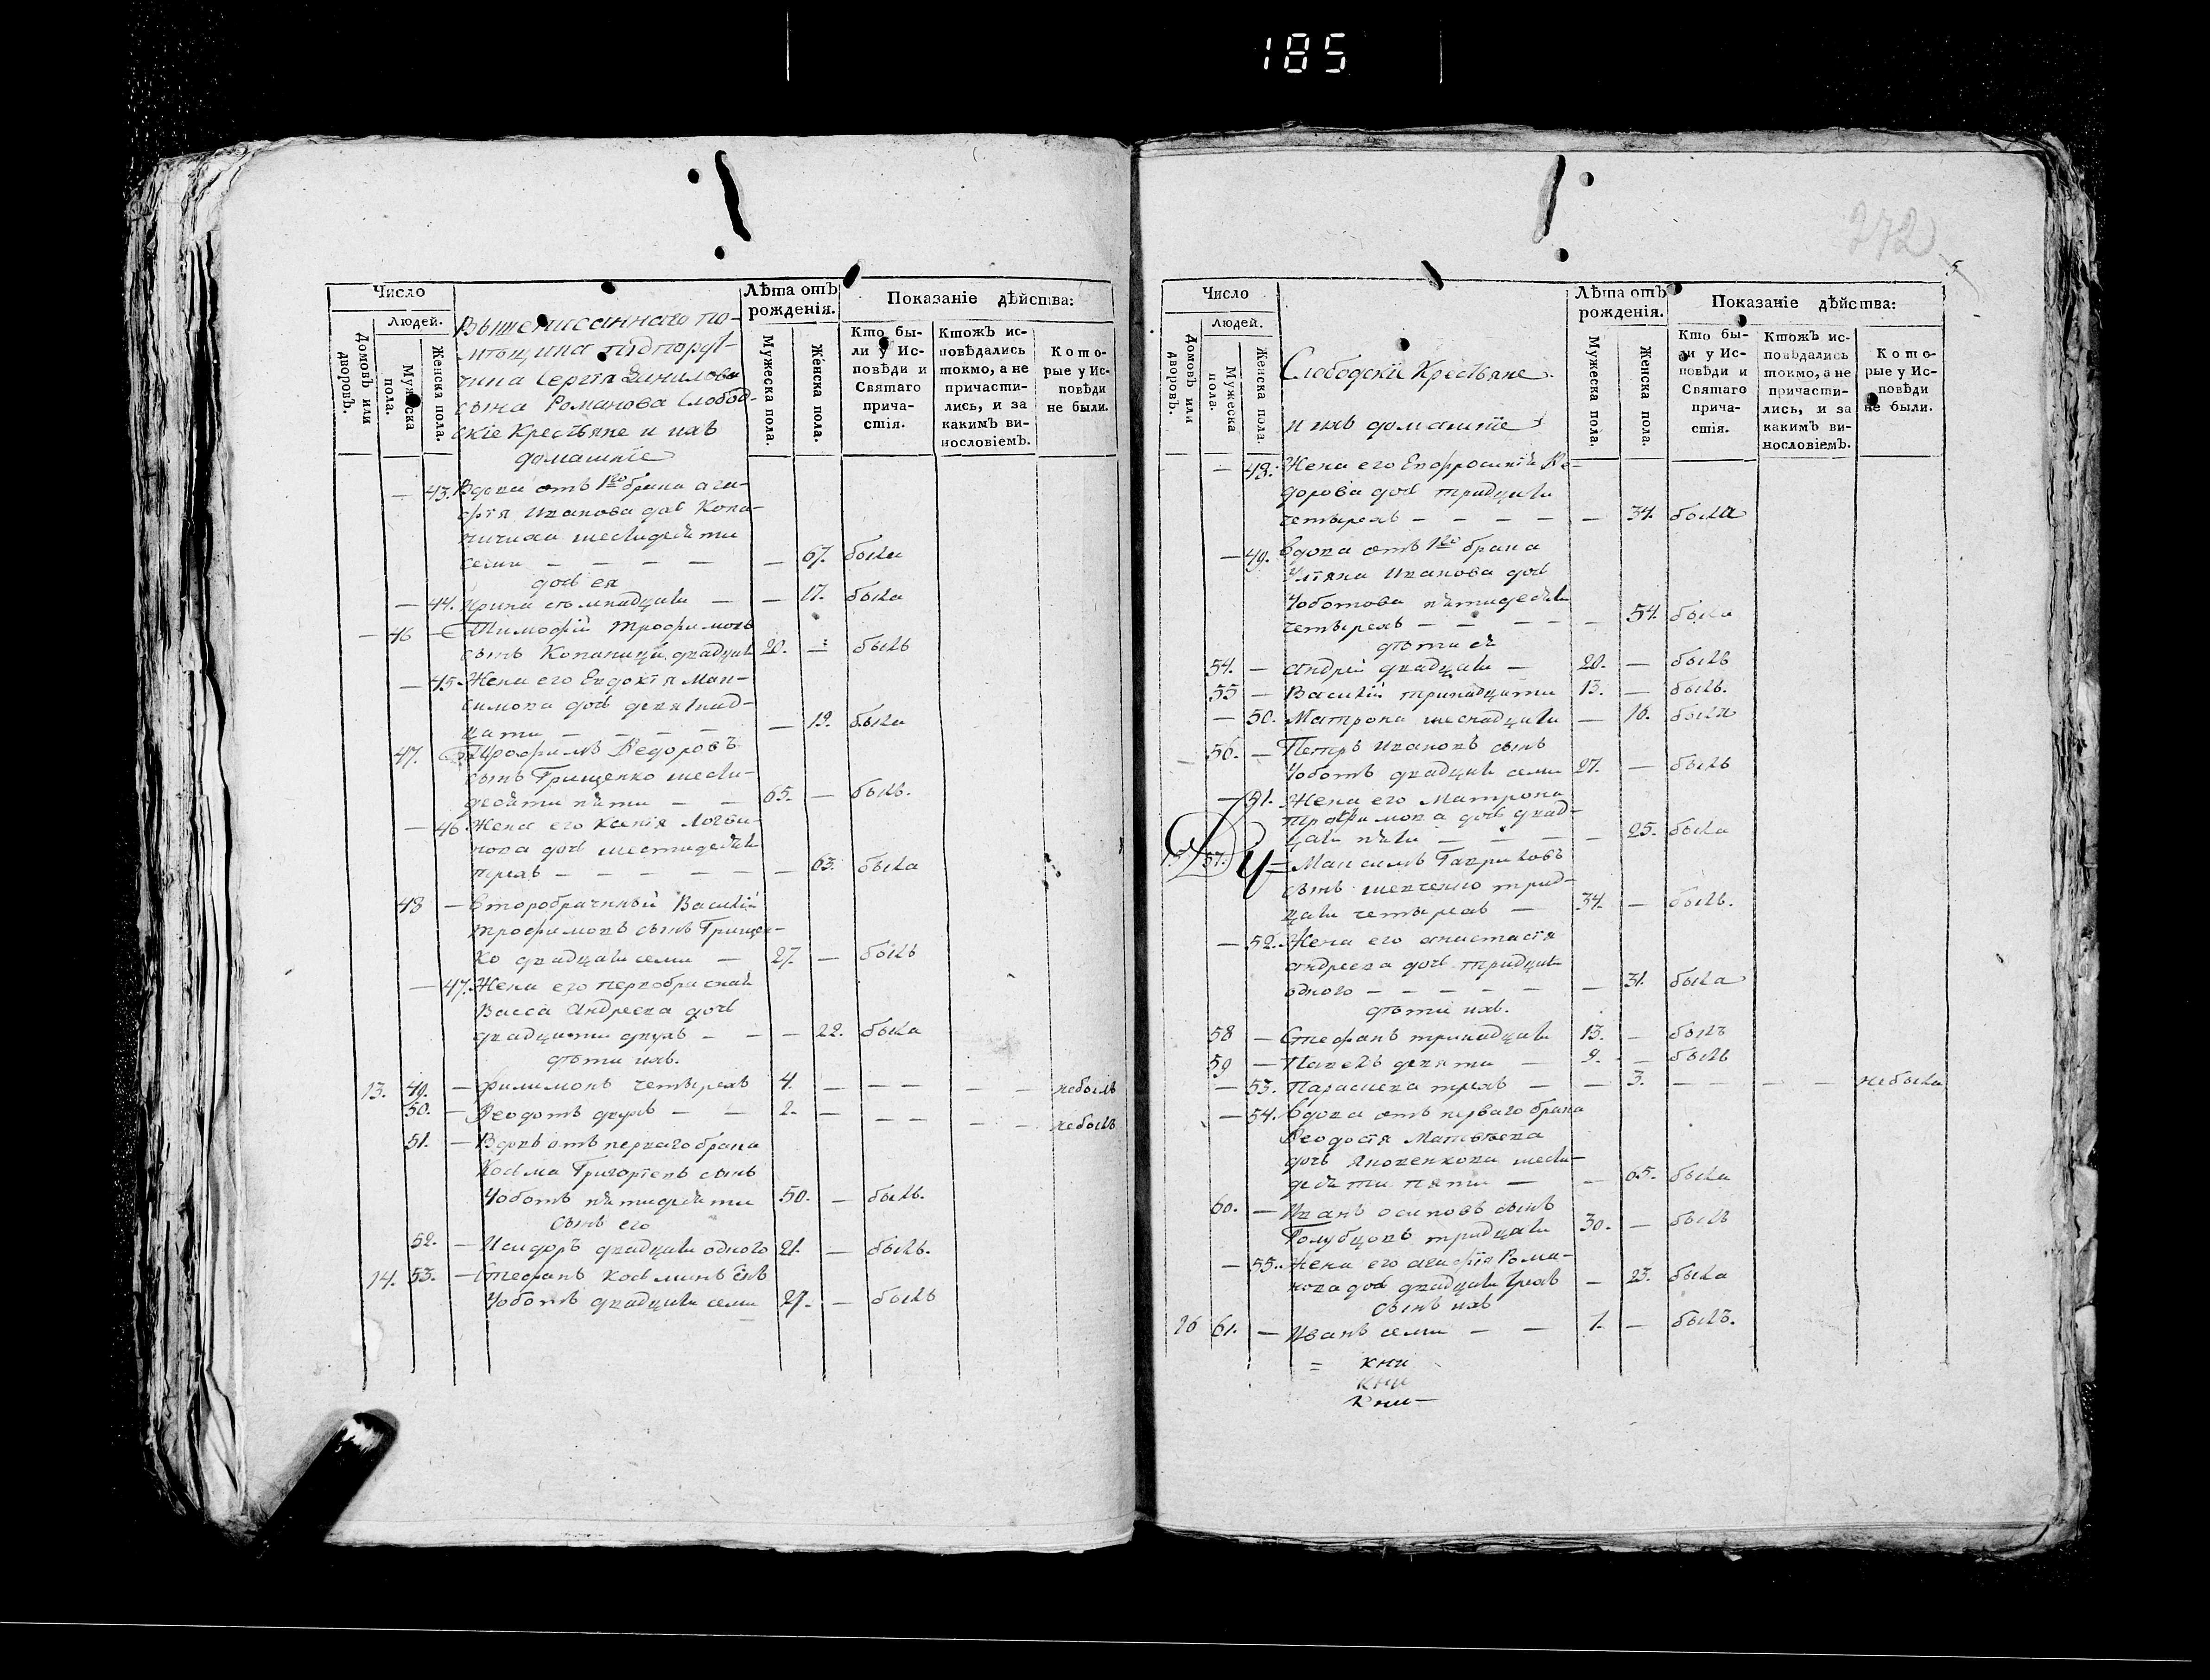 185
272
Число
Людей.
Домовъ или дворовъ.
Мужеска пола.
Женска пола.
Вышеписаннаго по-
мѣщика подпоруt-
чика Сергія Данилова
сына Романова Слобод-
скіе Крестьяне и ихъ
домашніе
Лѣта отъ рожденія.
Мужеска пола.
Женска пола.
Показаніе дѣйства:
Кто бы-
ли у Ис-
повѣди и
Святаго
прича-
стія.
Ктожъ ис-
повѣдались
токмо, а не
причасти-
лись, и за
какимъ ви-
нословіемъ.
Кото-
рые у Ис-
повѣди
не были.
— 43. Вдова отъ 1го брака ага-
фія Иванова дочь Копа-
ничиха шестидесяти
семи — — — — — 67. была
дочь ея
— 44. Ирина семнадцати — — 17. была
— 46 — Тимофій Трофимовъ
сынъ Копаница двадцати 20. — былъ
— 45. Жена его Евдокія Мак-
симова дочь девятнад-
цати — — — — — 19. была
47. Трофимъ Ѳедоровъ
сынъ Грищенко шести-
десяти пяти — — 65. — былъ.
— 46. Жена его Ксенія Логви-
нова дочь шестидесяти
трехъ — — — — — — 63. была
48 — Второбрачный Василій
Трофимовъ сынъ Грищен-
ко двадцати семи — 27. — былъ
— 47. Жена его первобрачная
Васса Андреева дочь
двадцати двухъ — — — 22. была
дѣти ихъ.
13. 49. — Филимонъ четырехъ 4. — — — — — небылъ
50. — Ѳеодотъ двухъ — — 2. — — — — — небылъ
51. — Вдовъ отъ перваго брака
Косьма Григоріевъ сынъ
Чоботъ пятидесяти 50. — былъ.
сынъ его
52. — Исидоръ двадцати одного 21. — былъ.
14. 53. — Стефанъ Косминъ снъ
Чоботъ двадцати семи 27. — былъ
Число
Людей.
Домовъ или дворовъ.
Мужеска пола.
Женска пола.
Слободскіе Крестьяне
и ихъ домашніе
Лѣта отъ рожденія.
Мужеска пола.
Женска пола.
Показаніе дѣйства:
Кто бы-
ли у Ис-
повѣди и
Святаго
прича-
стія.
Ктожъ ис-
повѣдались
токмо, а не
причасти-
лись, и за
какимъ ви-
нословіемъ.
Кото-
рые у Ис-
повѣди
не были.
— 48. Жена его Евфросинія Ѳе-
дорова дочь тридцати
четырехъ — — — — — 34. была
— 49. Вдова отъ 1го брака
Уліяна Иванова дочь
Чоботова пятидесяти
четырехъ — — — — — 54. была
дѣти ея
54. — Андрей двадцати — 20. — былъ
55 — Василій тринадцати 13. — былъ.
— 50. Матрона шеснадцати — 16. была
56. — Петръ Ивановъ сынъ
Чоботъ двадцати семи 27. — былъ
— 51. Жена его Матрона
Трофимова дочь двад-
цати пяти — — — — 25. была
57. — Максимъ Гавриловъ
сынъ Шевченко трид-
цати четырехъ — 34. — былъ.
— 52. Жена его анастасія
андреева дочь тридцати
одного — — — — — — 31. была
дѣти ихъ.
58 — Стефанъ тринадцати 13. — былъ
59 — Павелъ девяти — 9. — былъ
— 53. Параскева трехъ — — 3. — — — — небыла
— 54. Вдова отъ перваго брака
Ѳеодосія Матвѣева
дочь Яковенкова шести-
десяти пяти — — 65. была
60. — Иванъ осиповъ сынъ
Голубцовъ тридцати 30. — былъ
— 55. Жена его агафія Рома-
нова дочь двадцати трехъ — 23. была
сынъ ихъ
16 61. — Иванъ семи — — 7. — былъ.
= кни
кни
кни —